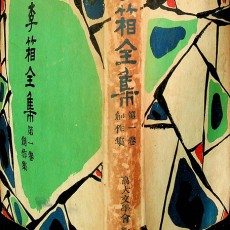 李箱全集
第一卷
創作集
箱全集
第一卷
創作集
高大文學會